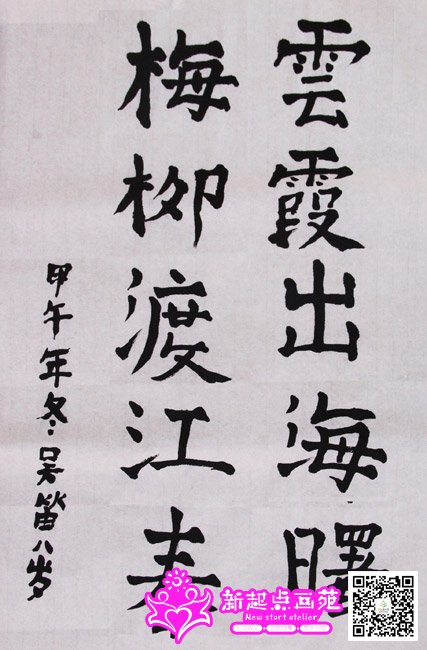 雲霞出海曙
梅柳渡江春
甲午年冬吴笛八岁
新起点画苑
New start atelier